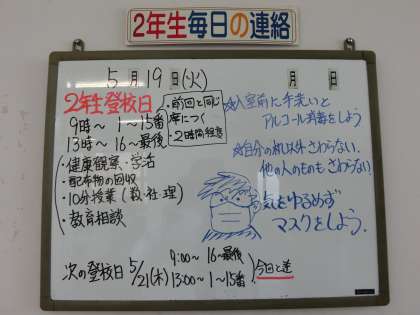 2年生毎日の連絡
5月19日(火)
月 日
2年生登校日
9時〜 1〜15番
13時〜 16〜最後
・前回と同じ
席につく
・2時間程度
・健康観察・学活
・配布物の回収
・10分授業(数・社・理)
・教育相談
☆入室前に手洗いと
アルコール消毒をしよう
☆自分の机以外さわらない。
他の人のものもさわらない!
気をゆるめず
マスクをしよう。
次の登校日 5/21(木)
9:00〜 16〜最後
13:00〜 1〜15番
今回と逆